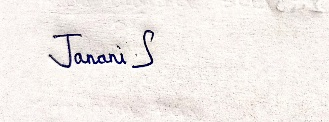 Janani S